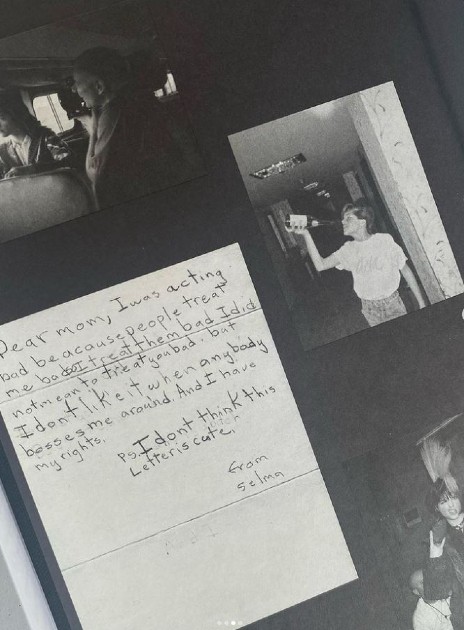 Dear mom, I was acting
bad beacause people treat
me bad so I treat them bad I did
not mean to treat you bad. but
I don't like it when anybody
bosses me around. And I have
my rights.
Ps. I dont think this
Letter is cute.
From
Selma